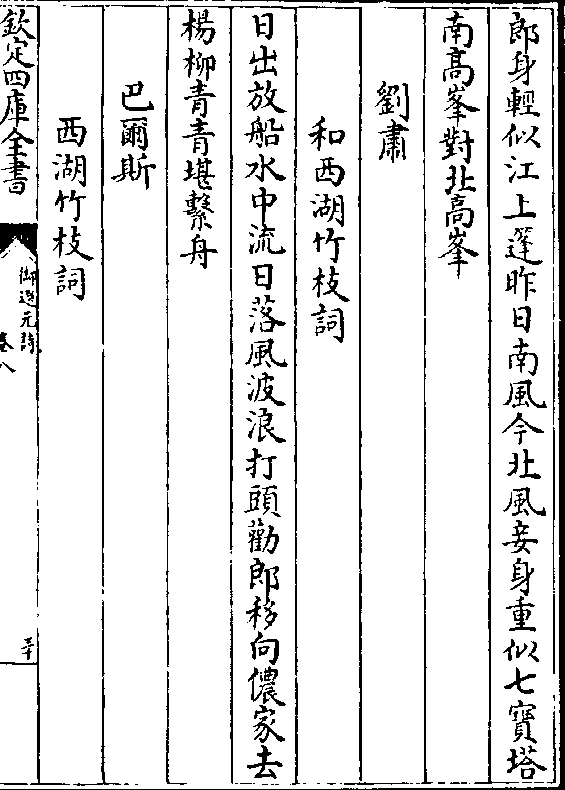 郎身輕似江上篷昨日南風今北風妾身重似七寳塔
南髙峯對北高峯
劉肅
和西湖竹枝詞
日出放船水中流日落風波浪打頭勸郎移向儂家去
楊柳青青堪繫舟
巴爾斯
西湖竹枝詞
欽定四庫全書
御選元詩
卷八
三十